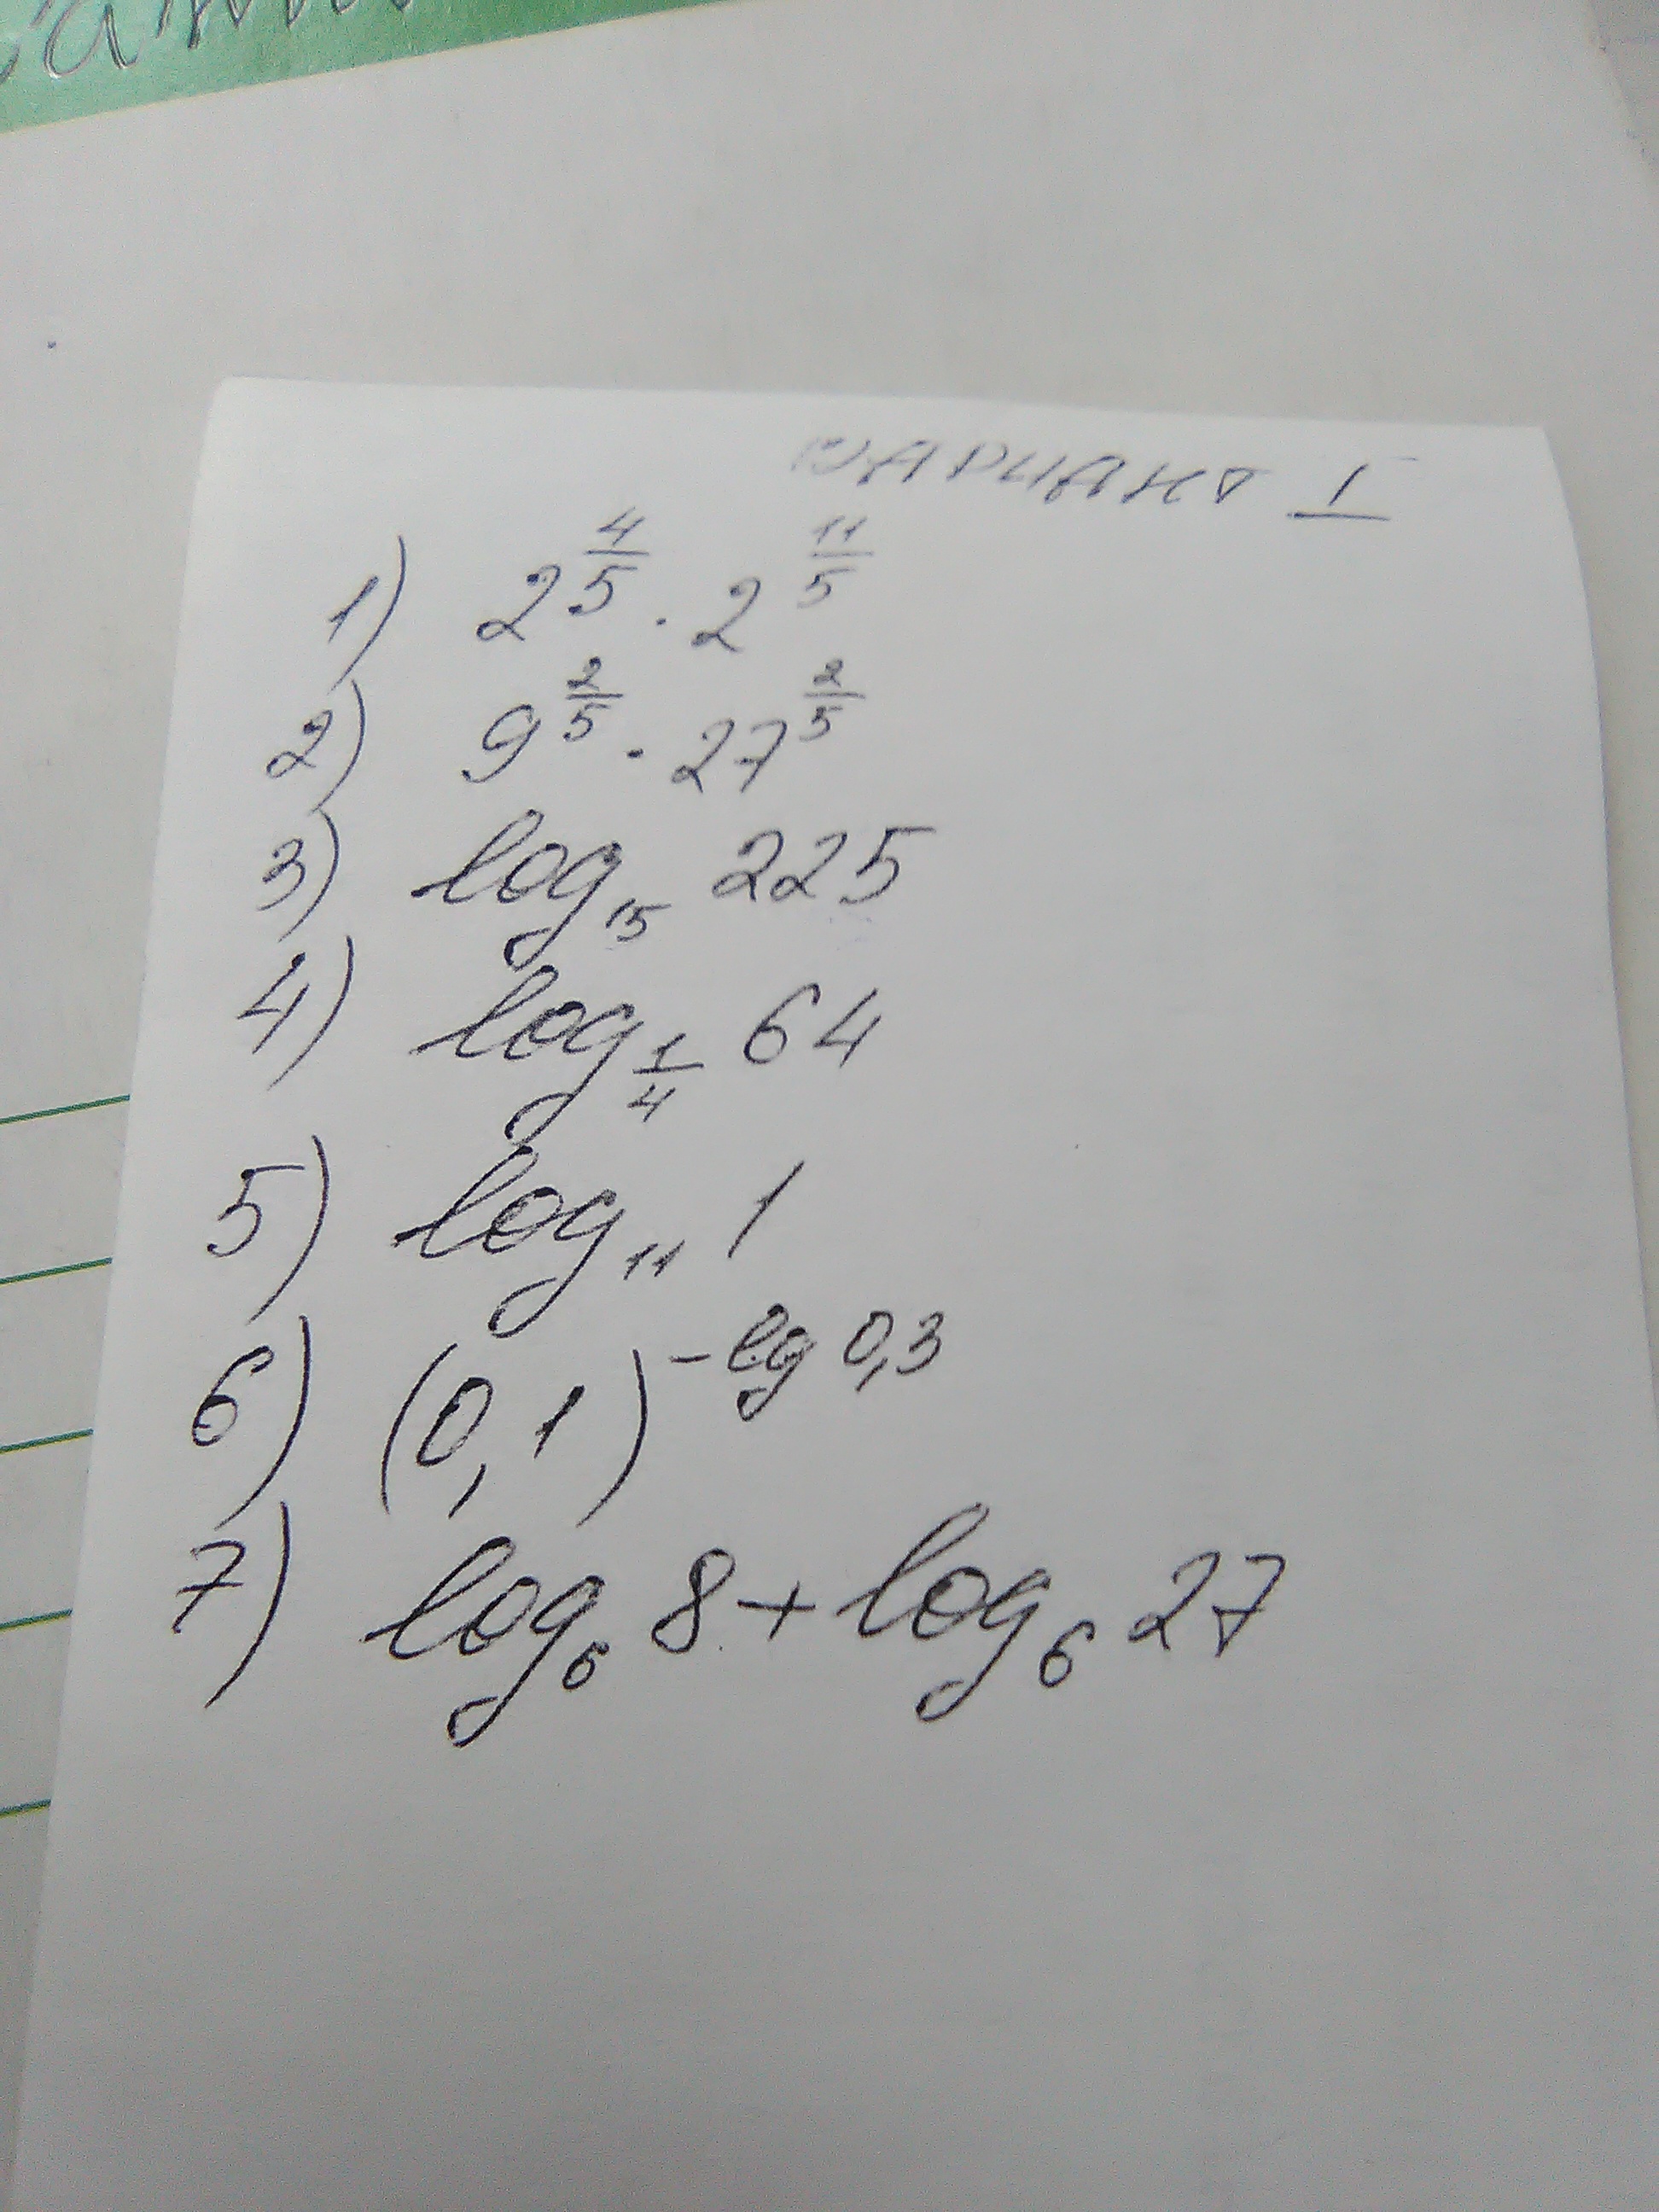 ВАРИАНТ I
1) 2^{4/5} · 2^{11/5}
2) 9^{2/5} · 27^{2/5}
3) log_{15} 225
4) log_{1/4} 64
5) log_{11} 1
6) (0,1)^{-lg 0,3}
7) log_6 8 + log_6 27